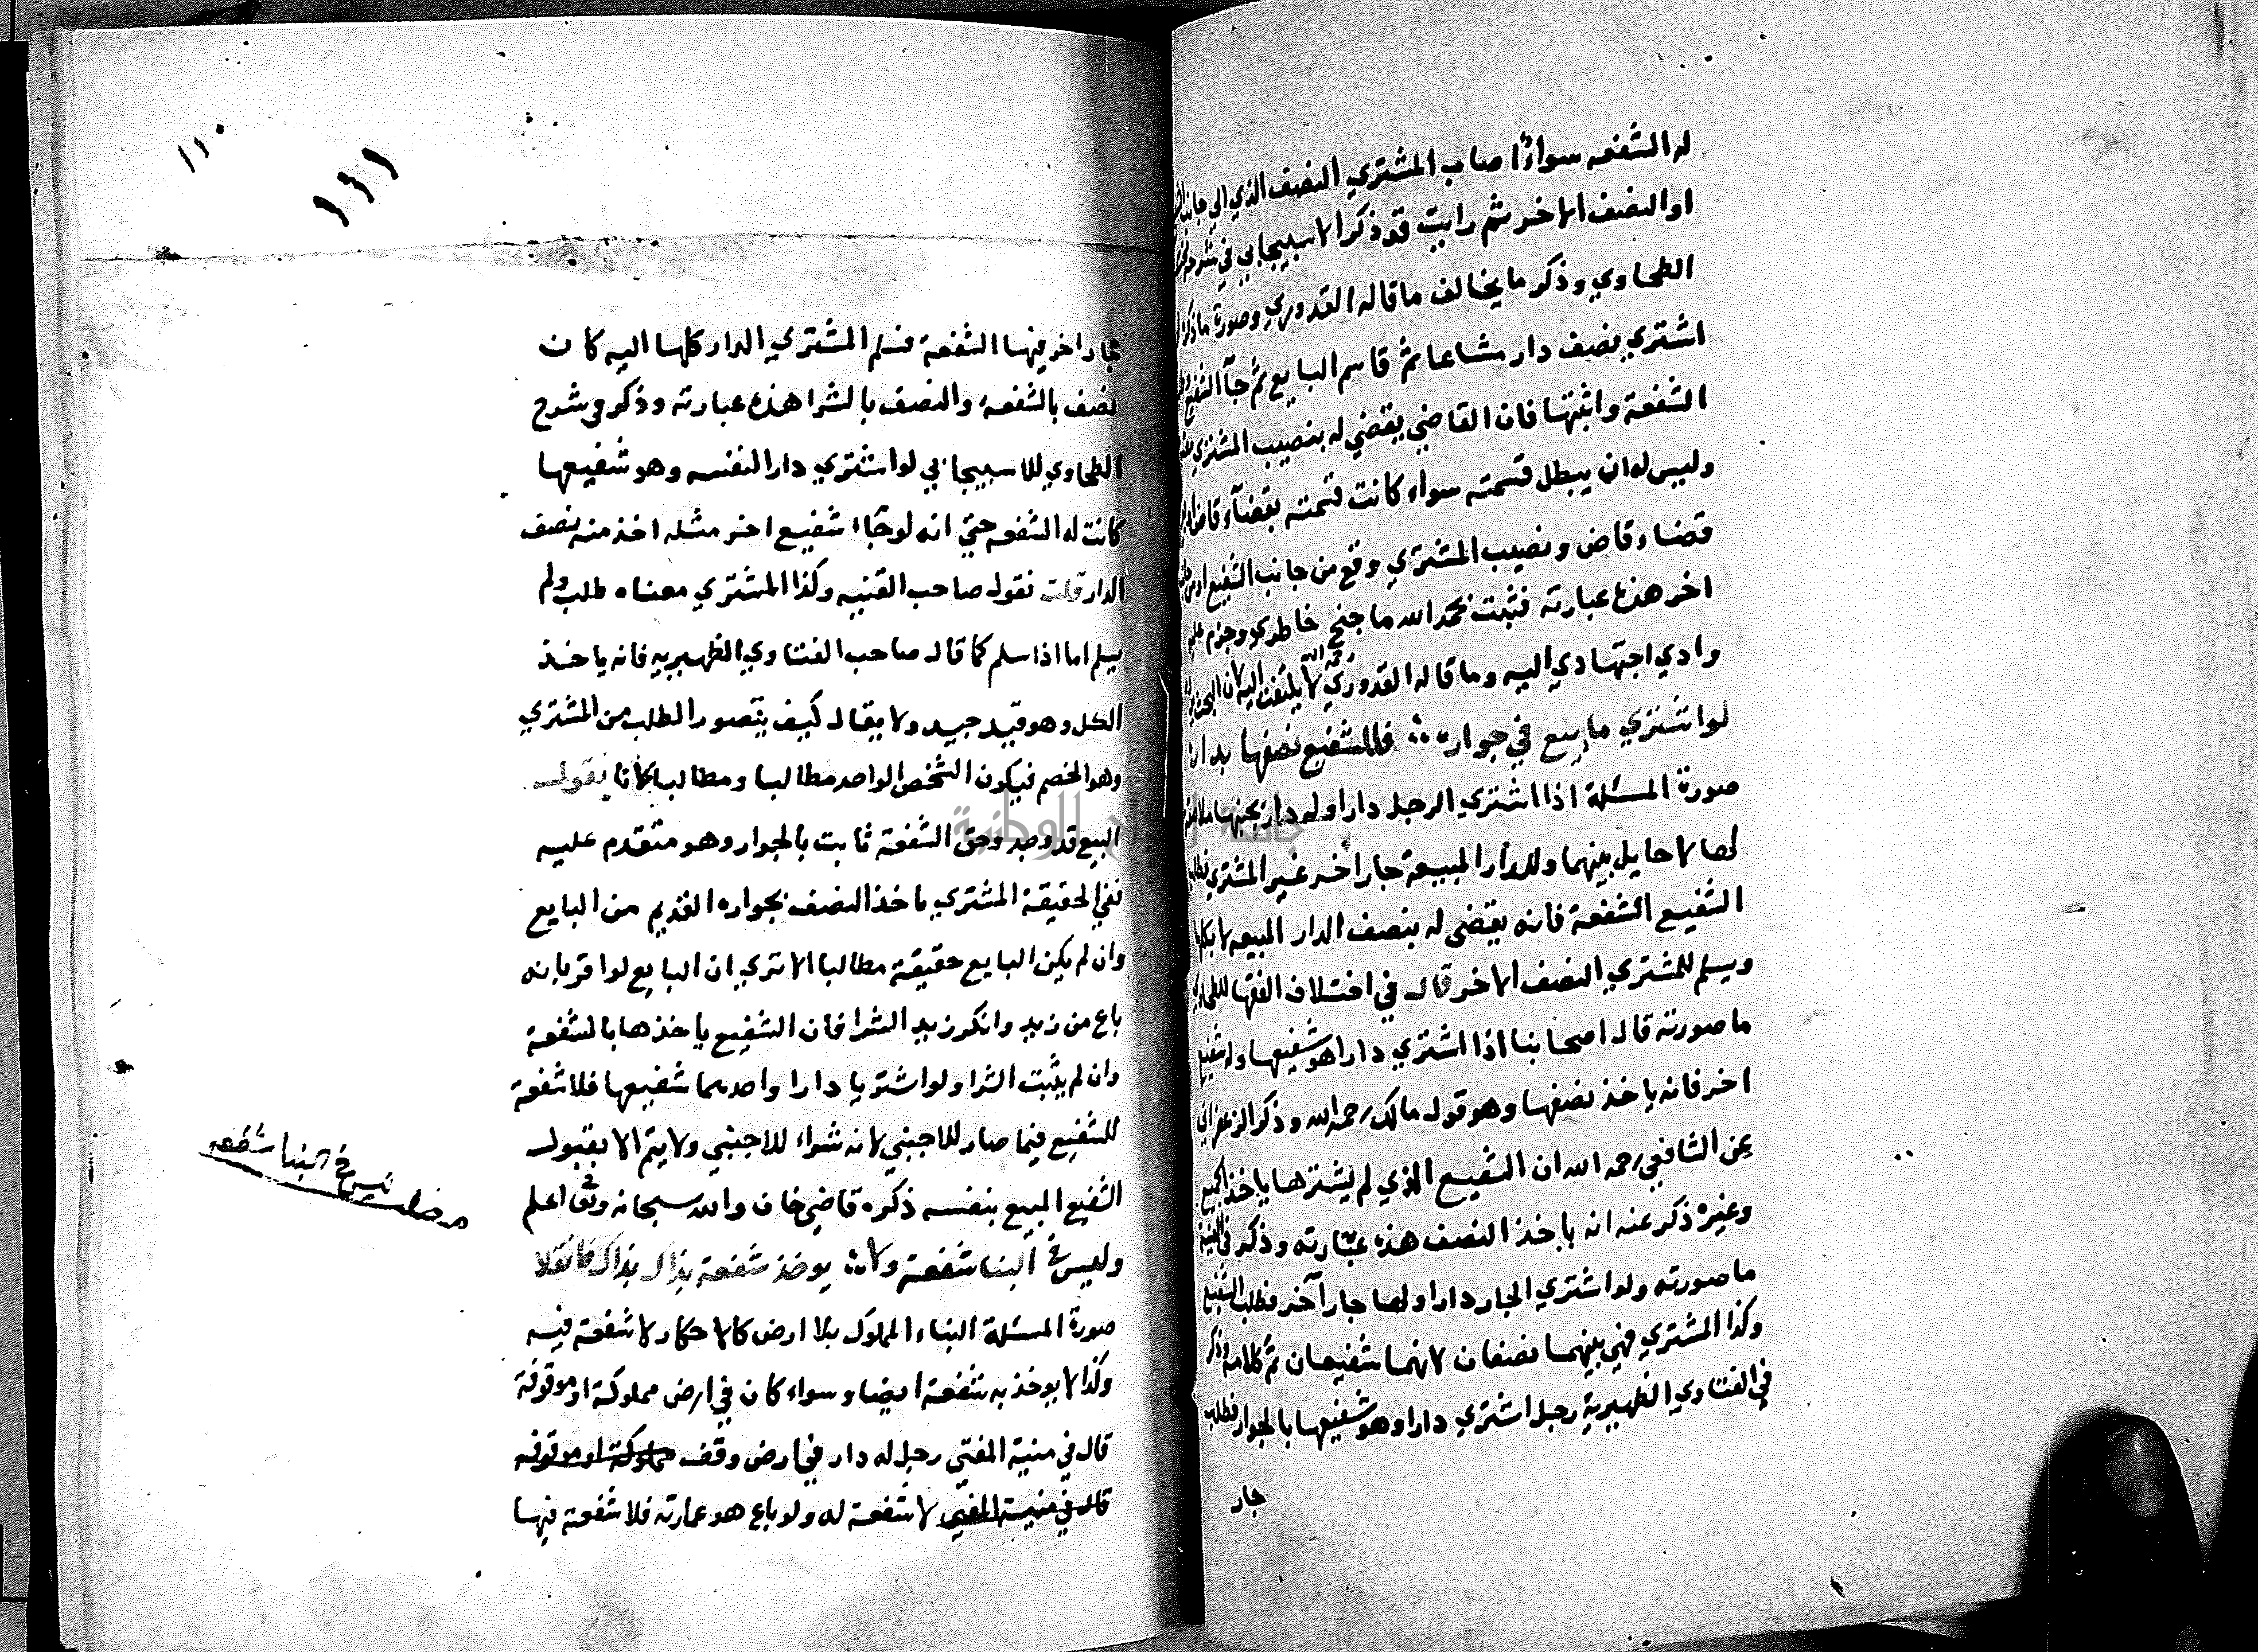 له الشفعه سواء اصاب المشتري النصف الذي الي جانب
او النصف الاخر ثم رايت قد ذكر الاسبيجابي في شرح
الطحاوي وذكر ما يخالف ما قاله القدوري وصورة ما ذكره
اشتري نصف دار مشاعا ثم قاسم البايع ثم جآ الشفيع
الشفعة واثبتها فان القاضي يقضي له بنصيب المشتري
وليس له ان يبطل قسمته سواء كانت قسمته بقضآء قاض
قضاء قاض ونصيب المشتري وقع من جانب الشفيع او من
اخر هذه عبارته فثبت بحمد الله ما جنح خاطري وجزم عليه
وادي اجتهادي اليه وما قاله القدوري رحمه الله لا يلتفت اليه لان البحث
لو اشتري ما بيع في جواره فللشفيع نصفها بدار
صورة المسئلة اذا اشتري الرجل دارا وله دار بجنبها ملاصقة
لها لا حايل بينهما وللدار المبيعة جار اخر غير المشتري
الشفيع الشفعة فانه يقضي له بنصف الدار المبيعه لا بكلها
ويسلم للمشتري النصف الاخر قال في اختلاف الفقها للطحاوي
ما صورته قال اصحابنا اذا اشتري دارا هو شفيعها وله شفيع
اخر فانه ياخذ نصفها وهو قول مالك رحمه الله وذكر الزعفراني
عن الشافعي رحمه الله ان الشفيع الذي لم يشترها ياخذ الجميع
وغيره ذكر عنه انه ياخذ النصف هذه عبارته وذكر في القنية
ما صورته ولو اشتري الجار دارا ولها جار آخر فطلب الشفيع
وكذا المشتري فهي بينهما نصفان لانهما شفيعان تم كلامه وذكر
في الفتاوي الظهيرية رجل اشتري دارا وهو شفيعها بالجوار فطلب
جار
١١٠
١٢١
جار اخر فيها الشفعة فسلم المشتري الدار كلها اليه كان
نصف بالشفعة والنصف بالشرا هذه عبارته وذكر في شرح
الطحاوي للاسبيجابي لو اشتري دارا لنفسه وهو شفيعها
كانت له الشفعه حتي انه لو جاء شفيع اخر مثله اخذ منه نصف
الدار قلت فقول صاحب القنيه وكذا المشتري معناه طلب ولم
يسلم اما اذا سلم كما قال صاحب الفتاوي الظهيريه فانه ياخذ
الكل وهو قيد جيد ولا يقال كيف يتصور الطلب من المشتري
وهو الخصم فيكون الشخص الواحد مطالبا ومطالبا لانا نقول
البيع قد وجد وحق الشفعة ثابت بالجوار وهو متقدم عليه
ففي الحقيقة المشتري ياخذ النصف بجواره القديم من البايع
وان لم يكن البايع حقيقة مطالبا الا تري ان البايع لو اقر بانه
باع من زيد وانكر زيد الشرا فان الشفيع ياخذها بالشفعة
وان لم يثبت الشرا ولو اشتريا دارا واحدهما شفيعها فلا شفعة
للشفيع فيما صار للاجنبي لانه شراء للاجنبي ولا يتم الا بقبول
الشفيع المبيع بنفسه ذكره قاضي خان والله سبحانه وتعالى اعلم
وليس في البنا شفعة ولا يوخذ شفعة بذاك بذاك فانقلا
صورة المسئلة البناء المملوك بلا ارض كالاحكار لا شفعة فيه
وكذا لا يوخذ به شفعة ايضا وسواء كان في ارض مملوكة او موقوفة
قال في منية المفتي رجل له دار في ارض وقف مملوكة او موقوفه
قال في منية المفتي لا شفعة له ولو باع هو عمارته فلا شفعة فيها
ليس في البنا شفعه
جامعة النجاح الوطنية